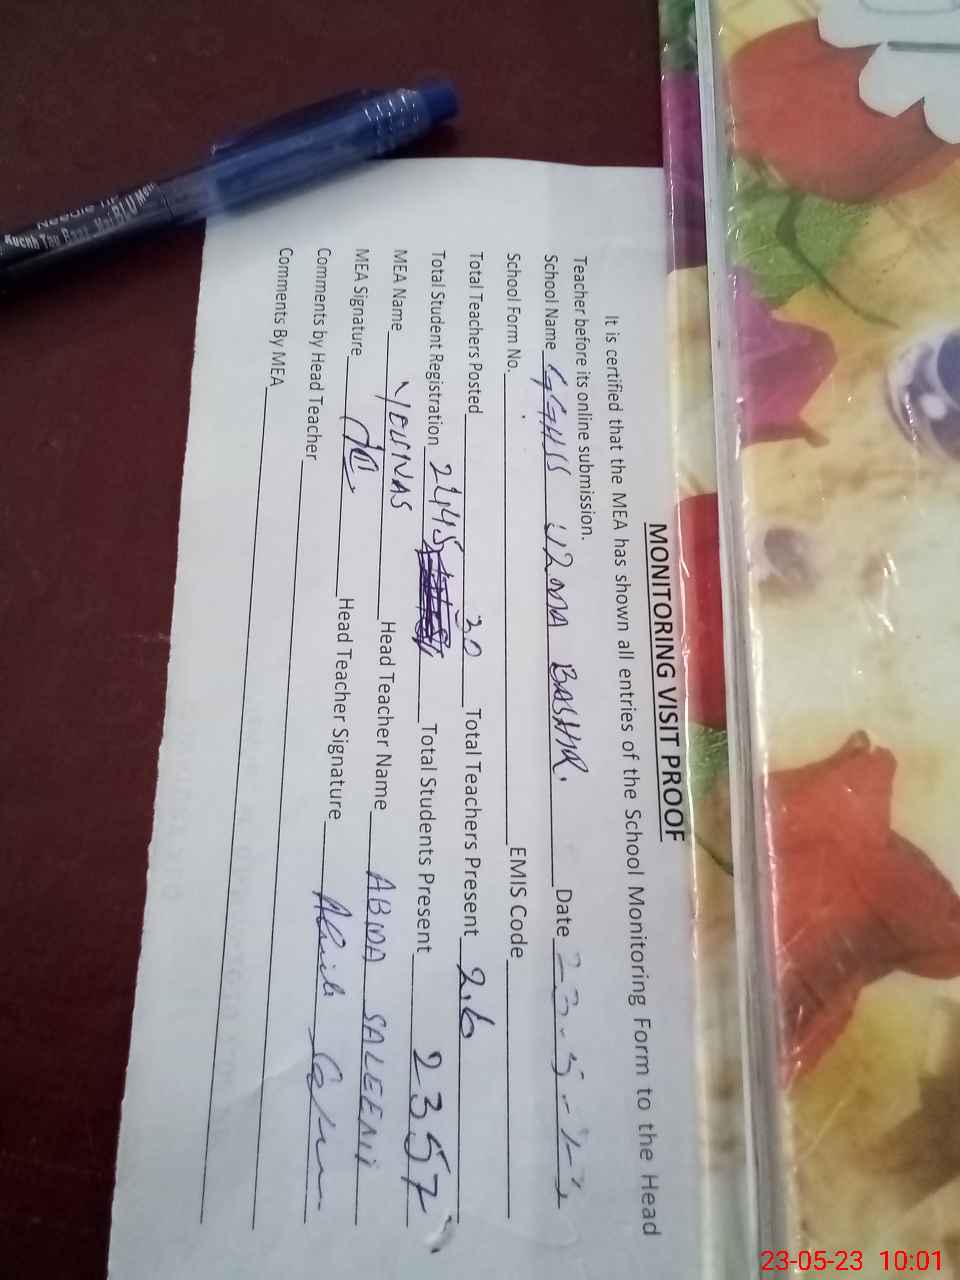 MONITORING VISIT PROOF
It is certified that the MEA has shown all entries of the School Monitoring Form to the Head
Teacher before its online submission.
School Name GGHSS UZMA BASHIR. Date 23-5-23
School Form No. EMIS Code
Total Teachers Posted 30 Total Teachers Present 26
Total Student Registration 2445 Total Students Present 2357
MEA Name YOUNAS Head Teacher Name ABIDA SALEEMI
MEA Signature Head Teacher Signature Abida
Comments by Head Teacher
Comments By MEA
23-05-23 10:01